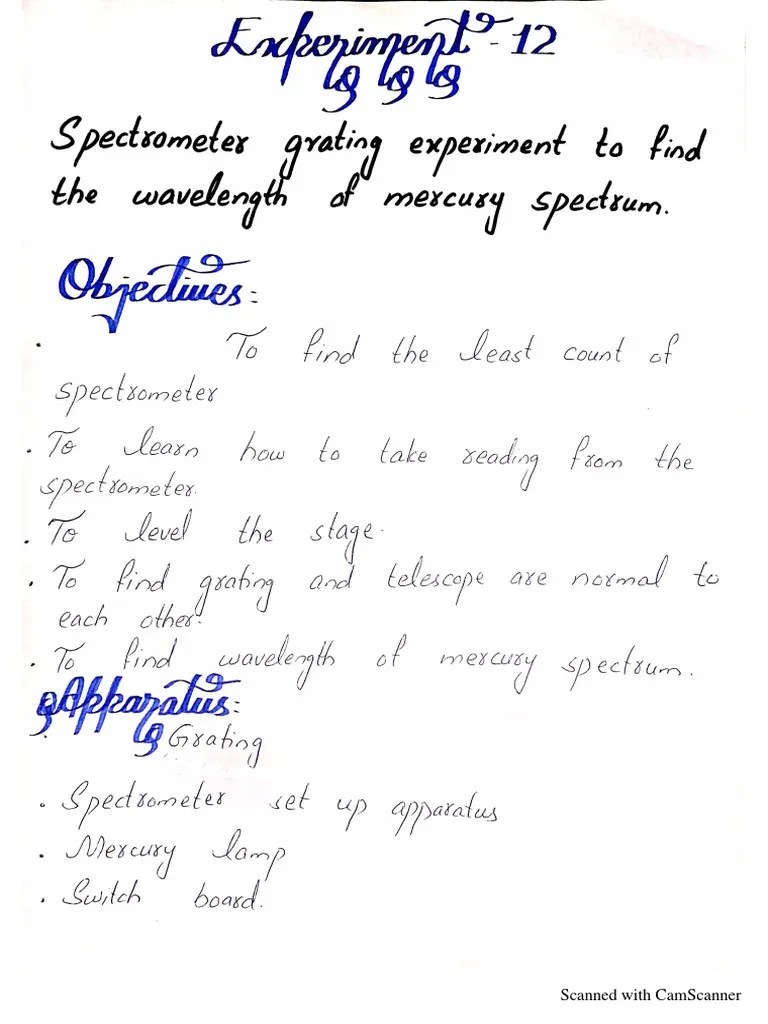 Experiment - 12
Spectrometer grating experiment to find
the wavelength of mercury spectrum.
Objectives:
• To find the least count of
spectrometer
• To learn how to take reading from the
spectrometer.
• To level the stage.
• To find grating and telescope are normal to
each other.
• To find wavelength of mercury spectrum.
Apparatus:
• Grating
• Spectrometer set up apparatus
• Mercury lamp
• Switch board.
Scanned with CamScanner